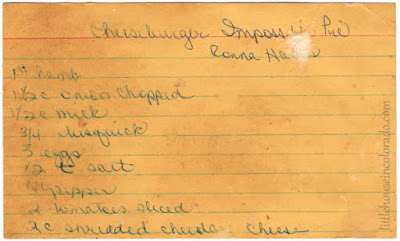 Cheeseburger Impossible Pie
Ronna
1# hamb
1 1/2 c onion chopped
1 1/2 c milk
3/4 bisquick
3 eggs
1/2 t salt
1/4 pepper
2 tomatoes sliced
2 c shredded cheddar cheese
littlehouseincolorado.com